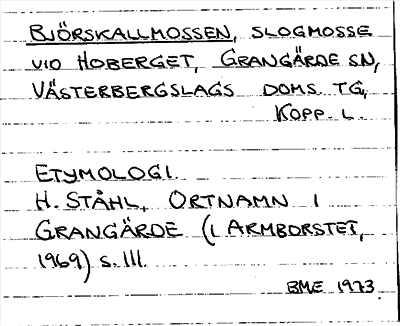 BJÖRSKALLMOSSEN, SLOGMOSSE
VID HOBERGET, GRANGÄRDE SN,
VÄSTERBERGSLAGS DOMS. TG,
KOPP. L.
ETYMOLOGI.
H. STÅHL, ORTNAMN I
GRANGÄRDE (I ARMBORSTET,
1969) S. 111.
BME 1973.